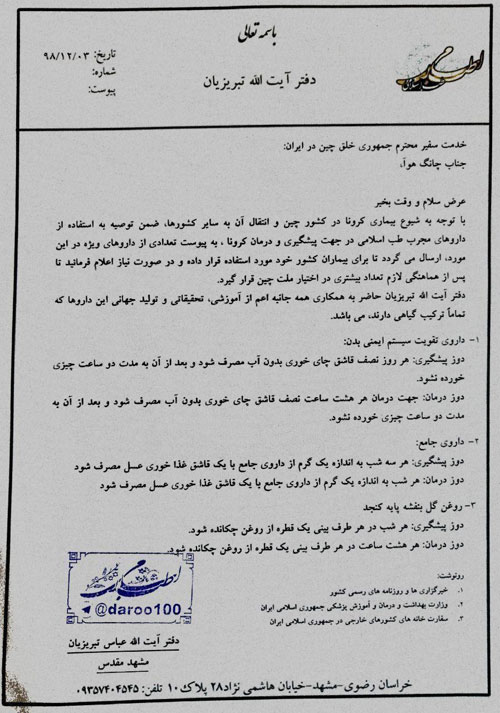 باسمه تعالی
تاریخ: ۹۸/۱۲/۰۳
شماره:
پیوست:
دفتر آیت الله تبریزیان
خدمت سفیر محترم جمهوری خلق چین در ایران:
جناب چانگ هوآ،
عرض سلام و وقت بخیر
با توجه به شیوع بیماری کرونا در کشور چین و انتقال آن به سایر کشورها، ضمن توصیه به استفاده از
داروهای مجرب طب اسلامی در جهت پیشگیری و درمان کرونا ، به پیوست تعدادی از داروهای ویژه در این
مورد، ارسال می گردد تا برای بیماران کشور خود مورد استفاده قرار داده و در صورت نیاز اعلام فرمائید تا
پس از هماهنگی لازم تعداد بیشتری در اختیار ملت چین قرار گیرد.
دفتر آیت الله تبریزیان حاضر به همکاری همه جانبه اعم از آموزشی، تحقیقاتی و تولید جهانی این داروها که
تماماً ترکیب گیاهی دارند، می باشد.
۱- داروی تقویت سیستم ایمنی بدن:
دوز پیشگیری: هر روز نصف قاشق چای خوری بدون آب مصرف شود و بعد از آن به مدت دو ساعت چیزی
خورده نشود.
دوز درمان: جهت درمان هر هشت ساعت نصف قاشق چای خوری بدون آب مصرف شود و بعد از آن به
مدت دو ساعت چیزی خورده نشود.
۲- داروی جامع:
دوز پیشگیری: هر سه شب به اندازه یک گرم از داروی جامع با یک قاشق غذا خوری عسل مصرف شود
دوز درمان: هر شب به اندازه یک گرم از داروی جامع با یک قاشق غذا خوری عسل مصرف شود
۳- روغن گل بنفشه پایه کنجد
دوز پیشگیری: هر شب در هر طرف بینی یک قطره از روغن چکانده شود.
دوز درمان: هر هشت ساعت در هر طرف بینی یک قطره از روغن چکانده شود.
رونوشت:
۱. خبرگزاری ها و روزنامه های رسمی کشور
۲. وزارت بهداشت و درمان و آموزش پزشکی جمهوری اسلامی ایران
۳. سفارت خانه های کشورهای خارجی در جمهوری اسلامی ایران
@daroo100
دفتر آیت الله عباس تبریزیان
مشهد مقدس
خراسان رضوی-مشهد-خیابان هاشمی نژاد۲۸ پلاک۱۰ تلفن: ۰۹۳۵۷۴۰۴۵۴۵